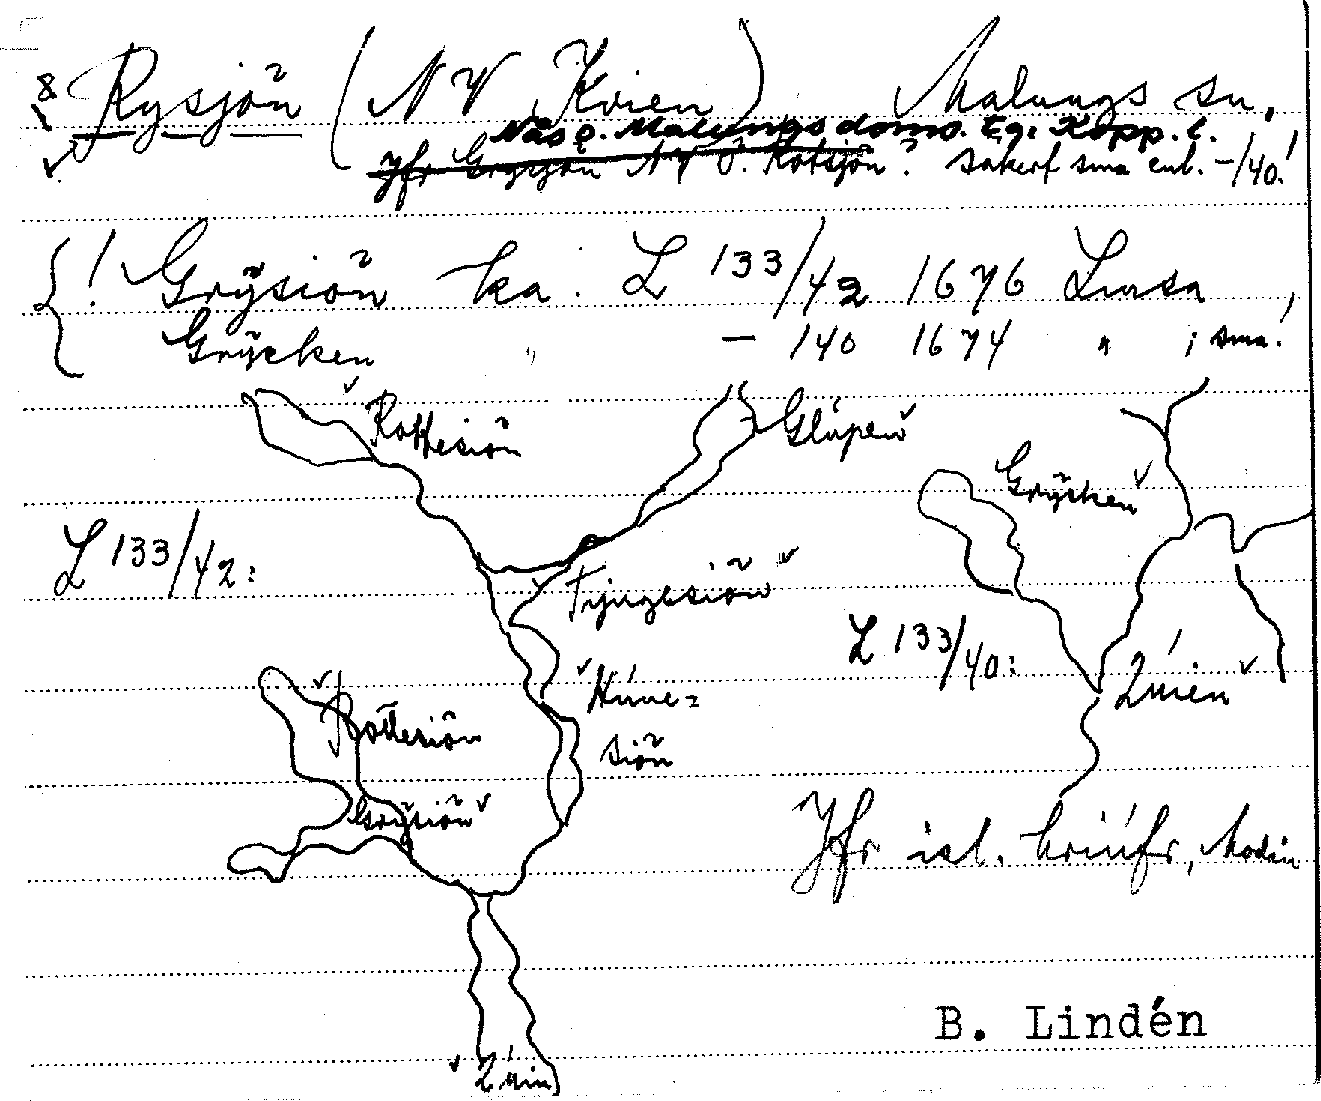 8 Rysjön (NV Kvien) Malungs sn,
Näs e. Malungs doms. Eg. Kopp. l.
Jfr Grysjön NV Ö. Rotsjön? säkert sma enl. -/40!
! Grÿsiön ka. L 133/42 1676 Lima
Grÿcken " — 140 1674 " ; sma!
Rottesiön
Glúpen
Grÿcken
L 133/42:
Tyngesiön
L 133/40:
Húne=
siön
Qúien
Rottesiön
Grÿsiön
Jfr isl. hriúfr, Modin
B. Lindén
Qúin